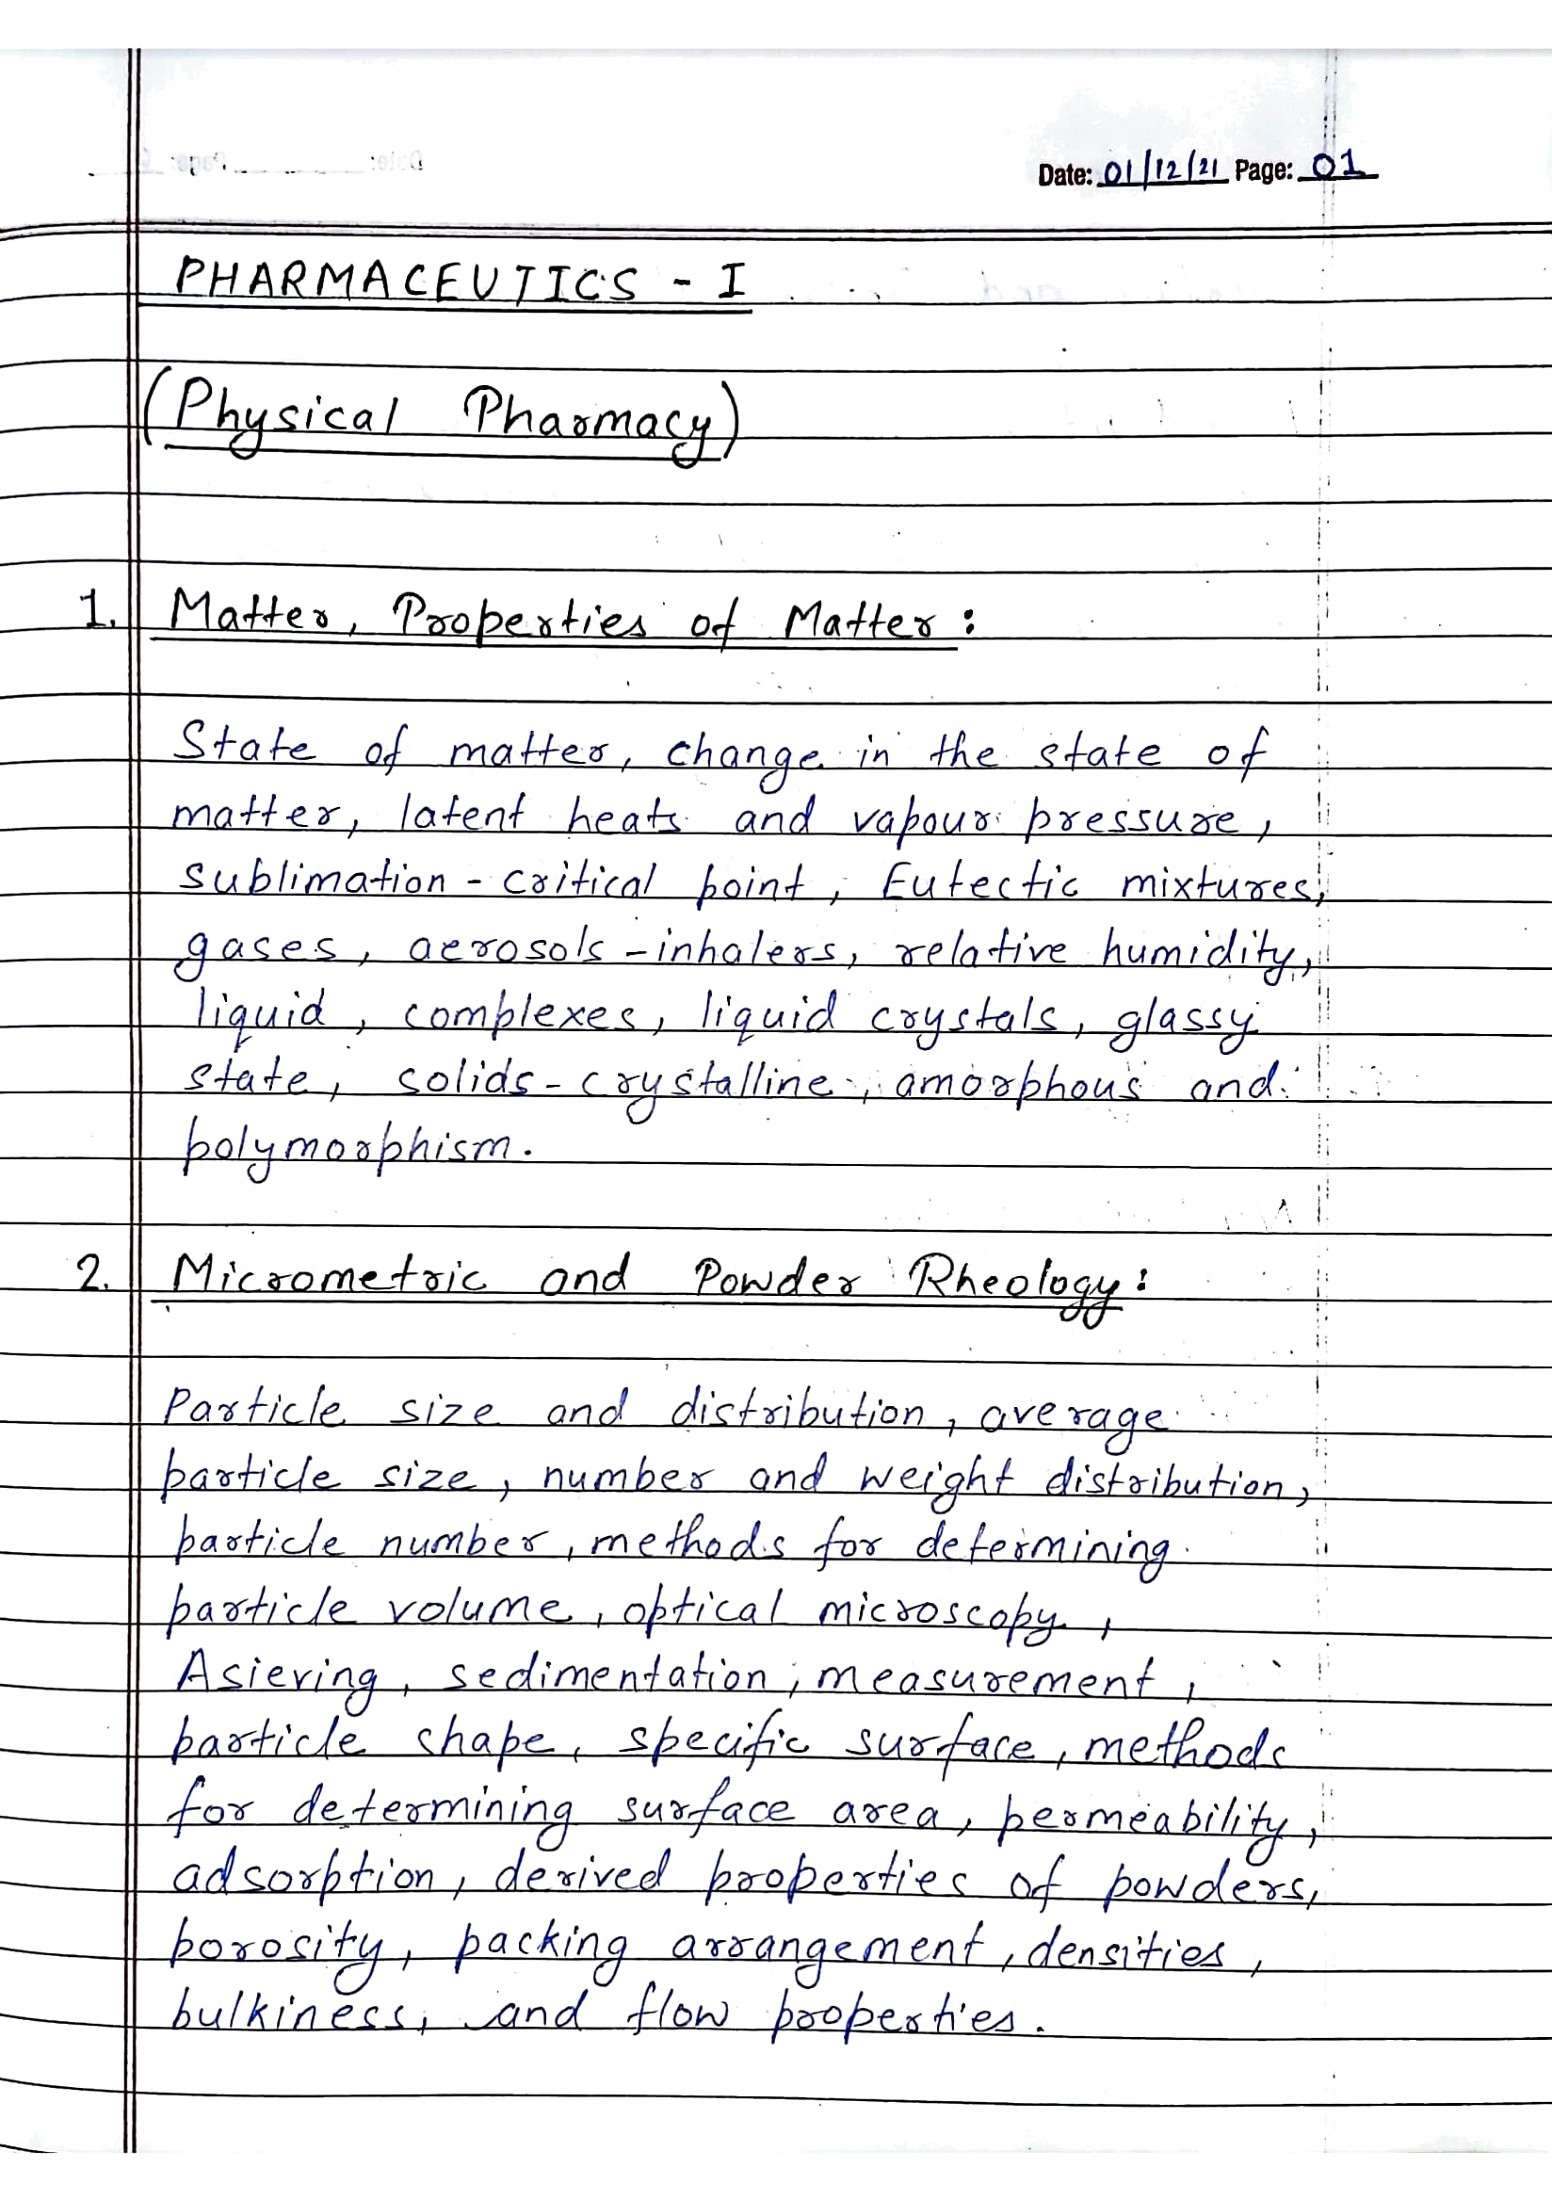 Date: 01/12/21 Page: 01
PHARMACEUTICS - I
(Physical Pharmacy)
1. Matter, Properties of Matter :
State of matter, change in the state of
matter, latent heats and vapour pressure,
sublimation - critical point, Eutectic mixtures,
gases, aerosols - inhalers, relative humidity,
liquid, complexes, liquid crystals, glassy
state, solids - crystalline, amorphous and
polymorphism.
2. Micrometric and Powder Rheology :
Particle size and distribution, average
particle size, number and weight distribution,
particle number, methods for determining
particle volume, optical microscopy,
Asievring, sedimentation, measurement,
particle shape, specific surface, methods
for determining surface area, permeability,
adsorption, derived properties of powders,
porosity, packing arrangement, densities,
bulkiness, and flow properties.